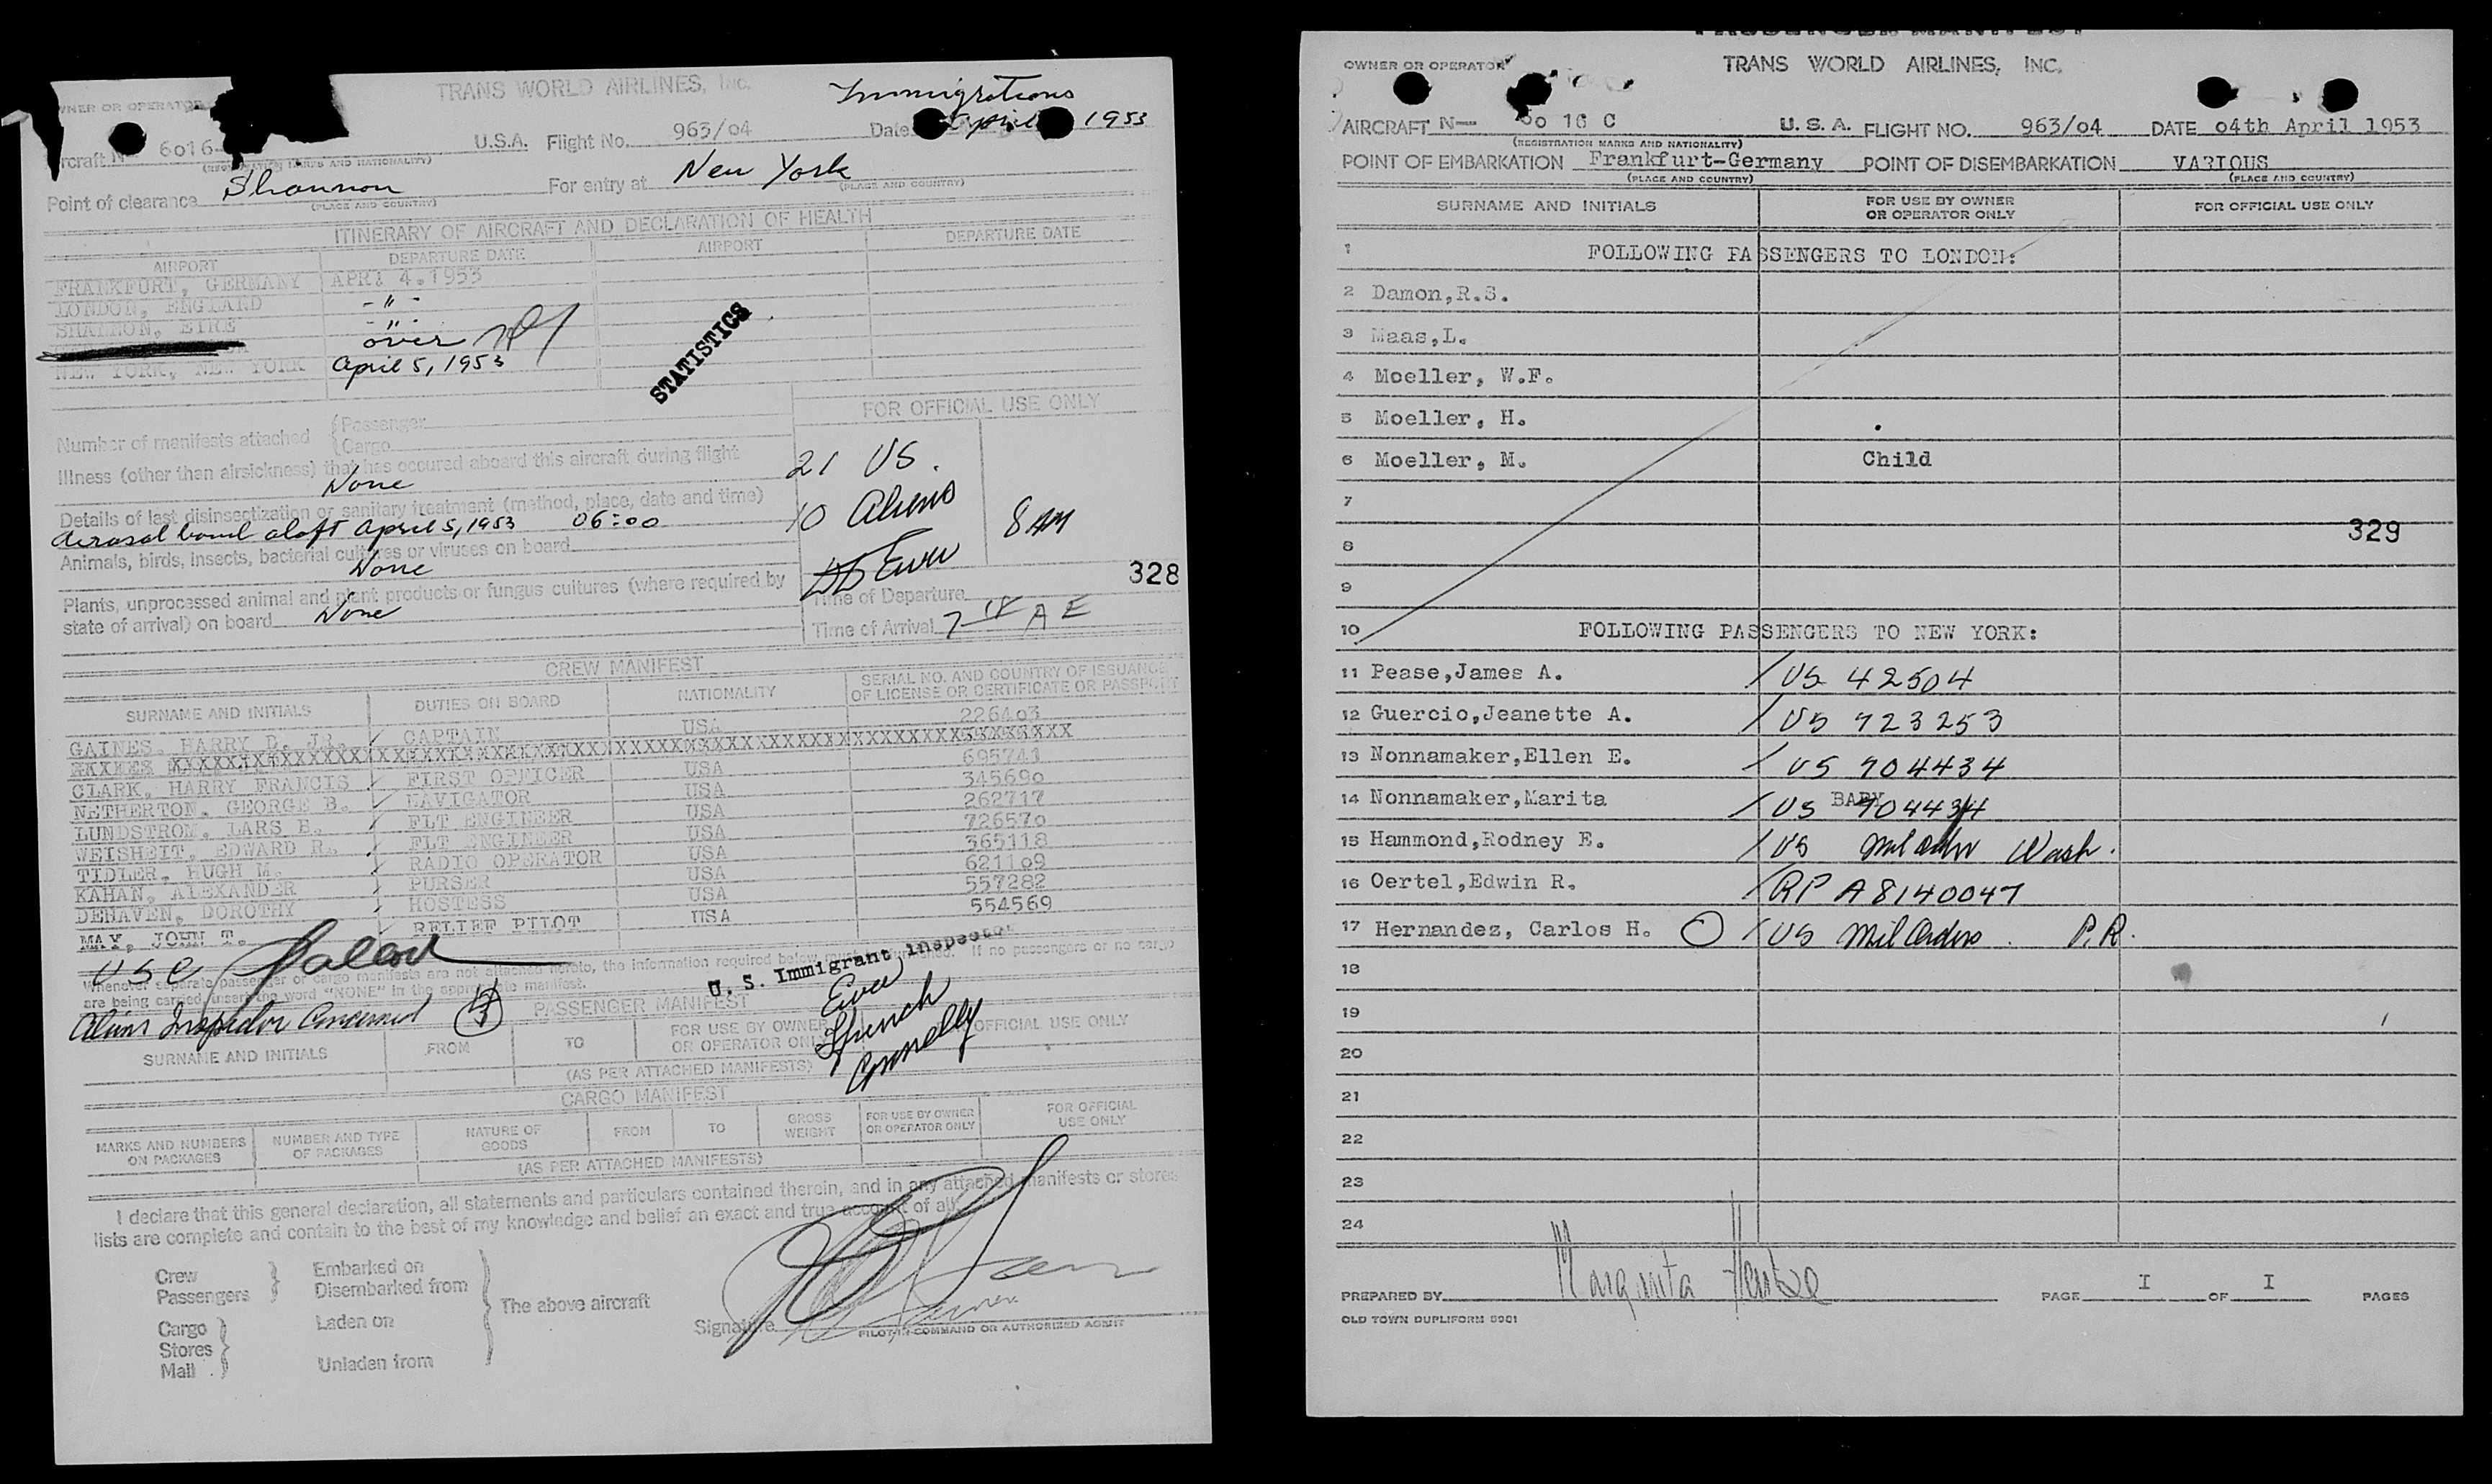 TRANS WORLD AIRLINES, Inc.
Immigrations
OWNER OR OPERATOR
Aircraft N 6016 U.S.A. Flight No. 963/04 Date April 1953
(REGISTRATION MARKS AND NATIONALITY)
Point of clearance Shannon For entry at New York
(PLACE AND COUNTRY) (PLACE AND COUNTRY)
ITINERARY OF AIRCRAFT AND DECLARATION OF HEALTH
AIRPORT DEPARTURE DATE AIRPORT DEPARTURE DATE
FRANKFURT, GERMANY APRI 4.1953
LONDON, ENGLAND - " -
SHANNON, EIRE - " -
over
NEW YORK, NEW YORK April 5, 1953
STATISTICS
Number of manifests attached {Passenger
{Cargo
FOR OFFICIAL USE ONLY
Illness (other than airsickness) that has occured aboard this aircraft during flight
None
21 US.
Details of last disinsectization or sanitary treatment (method, place, date and time)
Aerosal bomb aloft April 5, 1953 06:00
10 Aliens 8 AM
Animals, birds, insects, bacterial cultures or viruses on board
None
328
Plants, unprocessed animal and plant products or fungus cultures (where required by
state of arrival) on board None
Time of Departure
Time of Arrival 7 18 A E
CREW MANIFEST
SURNAME AND INITIALS DUTIES ON BOARD NATIONALITY SERIAL NO. AND COUNTRY OF ISSUANCE
OF LICENSE OR CERTIFICATE OR PASSPORT
GAINES, HARRY D. JR. CAPTAIN USA 226403
CLARK, HARRY FRANCIS FIRST OFFICER USA 695741
NETHERTON, GEORGE B. NAVIGATOR USA 345690
LUNDSTROM, LARS E. FLT ENGINEER USA 262717
WEISHEIT, EDWARD R. FLT ENGINEER USA 726570
TIDLER, HUGH M. RADIO OPERATOR USA 365118
KAHAN, ALEXANDER PURSER USA 621109
DEHAVEN, DOROTHY HOSTESS USA 557282
MAY, JOHN T. RELIEF PILOT USA 554569
USC
Whenever separate passenger or cargo manifests are not attached hereto, the information required below must be furnished. If no passengers or no cargo
are being carried, insert the word "NONE" in the appropriate manifest.
U. S. Immigrant Inspector
Aliens Inspector Concerned
PASSENGER MANIFEST
SURNAME AND INITIALS FROM TO FOR USE BY OWNER
OR OPERATOR ONLY FOR OFFICIAL USE ONLY
Connelly
(AS PER ATTACHED MANIFESTS)
CARGO MANIFEST
MARKS AND NUMBERS
ON PACKAGES NUMBER AND TYPE
OF PACKAGES NATURE OF
GOODS FROM TO GROSS
WEIGHT FOR USE BY OWNER
OR OPERATOR ONLY FOR OFFICIAL
USE ONLY
(AS PER ATTACHED MANIFESTS)
I declare that this general declaration, all statements and particulars contained therein, and in any attached manifests or stores
lists are complete and contain to the best of my knowledge and belief an exact and true account of all
Crew
Passengers } Embarked on
Disembarked from
The above aircraft
Cargo
Stores
Mail } Laden on
Unladen from
Signature
PILOT-IN-COMMAND OR AUTHORIZED AGENT
PASSENGER MANIFEST
OWNER OR OPERATOR TRANS WORLD AIRLINES, INC.
AIRCRAFT N- 60 16 C U. S. A. FLIGHT NO. 963/04 DATE 04th April 1953
(REGISTRATION MARKS AND NATIONALITY)
POINT OF EMBARKATION Frankfurt-Germany POINT OF DISEMBARKATION VARIOUS
(PLACE AND COUNTRY) (PLACE AND COUNTRY)
SURNAME AND INITIALS FOR USE BY OWNER
OR OPERATOR ONLY FOR OFFICIAL USE ONLY
1 FOLLOWING PASSENGERS TO LONDON:
2 Damon,R.S.
3 Maas,L.
4 Moeller, W.F.
5 Moeller, H.
6 Moeller, M. Child
7
8 329
9
10 FOLLOWING PASSENGERS TO NEW YORK:
11 Pease,James A. / US 42504
12 Guercio,Jeanette A. / US 723253
13 Nonnamaker,Ellen E. / US 704434
14 Nonnamaker,Marita / US BABY 704434
15 Hammond,Rodney E. / US Mil Wash.
16 Oertel,Edwin R. / RP A8140047
17 Hernandez, Carlos H. / US Mil Orders. P.R.
18
19
20
21
22
23
24
PREPARED BY Margarita PAGE I OF I PAGES
OLD TOWN DUPLIFORM 5901